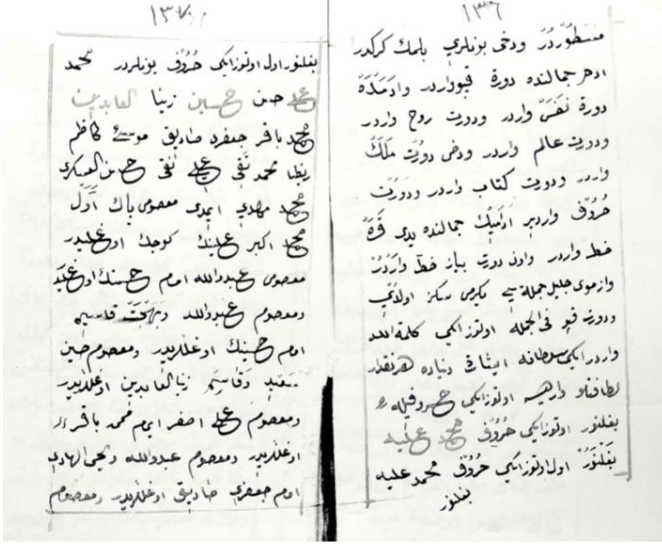 ١٣٦
مسطوردر ودخی بونلری بلمك كركدر
ادم جمالنده دورة قپو واردر وادمده
دورة نفس واردر ودورت روح واردر
ودورت عالم واردر ودخی دورت ملك
واردر ودورت كتاب واردر ودورت
حروف واردر ادمك جمالنده يدی قره
خط واردر واون دورت بياز خط واردر
وازموی جمله سی يكرمی سكز اولدی
ودورت قپو فی الجمله اوتوزایكی كلمة الله
واردر ایكی سلطانه دنیاده هرنقدر
اوتوزایكی حروفله
بفلنور اوتوزایكی حروف محمد علیه
بفلنور اول اوتوزایكی حروف محمد علیه
بفلنور
١٣٧
بفلنور اول اوتوزایكی حروف بونلردر محمد
علی حسن حسین زینا العابدین
محمد باقر جعفر صادق موسی كاظم
رضا محمد تقی علی نقی حسن العسكری
محمد مهدی ایمدی معصوم پاك اول
محمد اكبر علینك كوچك اوغلیدر
معصوم عبدوالله امام حسنك اوغلیدر
ومعصوم عبدوالله قاسم
امام حسینك اوغللریدر ومعصوم حسین
وقاسم زینالعابدین اوغللریدر
ومعصوم علی اصغر امام محمد باقر
اوغللریدر ومعصوم عبدوالله ویحی الهادی
امام جعفری صادق اوغللریدر ومعصوم